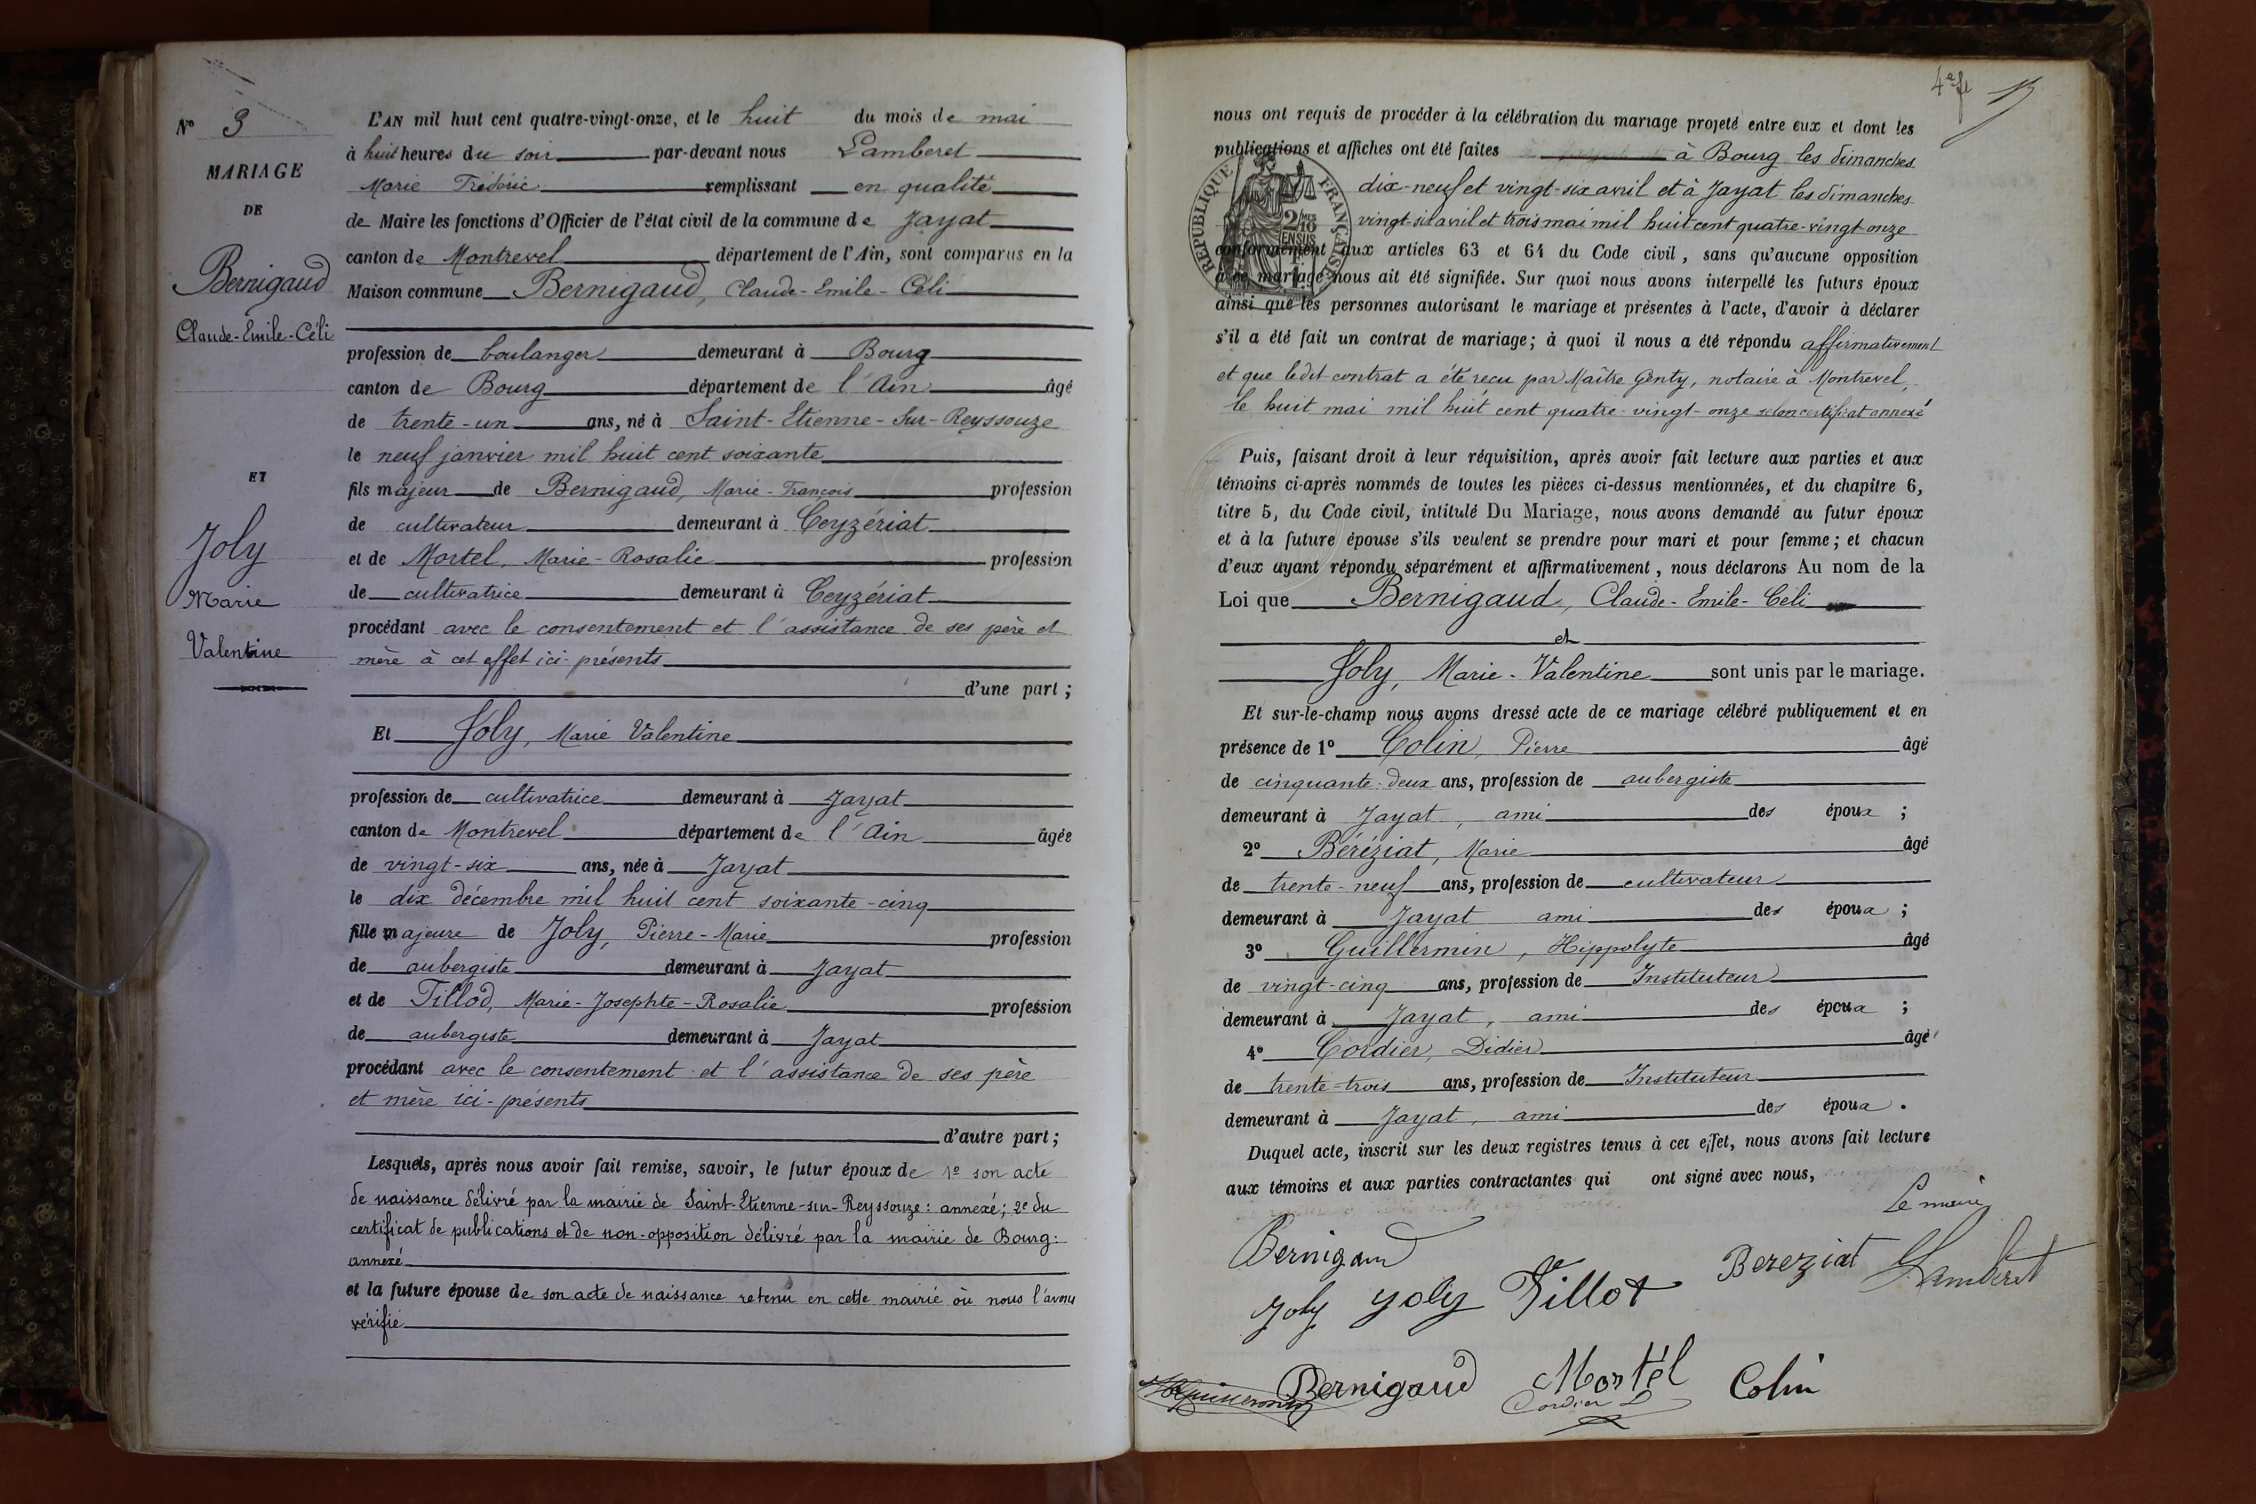 Nº 3
MARIAGE
DE
Bernigaud
Claude-Emile-Céli
ET
Joly
Marie
Valentine
L'AN mil huit cent quatre-vingt-onze, et le huit du mois de mai
à huit heures du soir par-devant nous Lamberet
Marie Frédéric remplissant en qualité
de Maire les fonctions d'Officier de l'état civil de la commune de Jayat
canton de Montrevel département de l'Ain, sont comparus en la
Maison commune Bernigaud, Claude-Emile-Céli
profession de boulanger demeurant à Bourg
canton de Bourg département de l'Ain âgé
de trente-un ans, né à Saint-Etienne-sur-Reyssouze
le neuf janvier mil huit cent soixante
fils majeur de Bernigaud, Marie-François profession
de cultivateur demeurant à Ceyzériat
et de Mortel, Marie-Rosalie profession
de cultivatrice demeurant à Ceyzériat
procédant avec le consentement et l'assistance de ses père et
mère à cet effet ici présents
d'une part ;
Et Joly, Marie Valentine
profession de cultivatrice demeurant à Jayat
canton de Montrevel département de l'Ain âgée
de vingt-six ans, née à Jayat
le dix décembre mil huit cent soixante-cinq
fille majeure de Joly, Pierre-Marie profession
de aubergiste demeurant à Jayat
et de Tillod, Marie-Josephte-Rosalie profession
de aubergiste demeurant à Jayat
procédant avec le consentement et l'assistance de ses père
et mère ici-présents
d'autre part ;
Lesquels, après nous avoir fait remise, savoir, le futur époux de 1º son acte
de naissance délivré par la mairie de Saint-Etienne-sur-Reyssouze : annexé ; 2º du
certificat de publications et de non-opposition délivré par la mairie de Bourg :
annexé
et la future épouse de son acte de naissance retenu en cette mairie où nous l'avons
vérifié
4e ft
nous ont requis de procéder à la célébration du mariage projeté entre eux et dont les
publications et affiches ont été faites à Bourg les dimanches
dix-neuf et vingt-six avril et à Jayat les dimanches
vingt-six avril et trois mai mil huit cent quatre-vingt onze
conformément aux articles 63 et 64 du Code civil, sans qu'aucune opposition
à ce mariage nous ait été signifiée. Sur quoi nous avons interpellé les futurs époux
ainsi que les personnes autorisant le mariage et présentes à l'acte, d'avoir à déclarer
s'il a été fait un contrat de mariage ; à quoi il nous a été répondu affirmativement
et que ledit contrat a été reçu par Maître Genty, notaire à Montrevel,
le huit mai mil huit cent quatre-vingt-onze selon certificat annexé
RÉPUBLIQUE FRANÇAISE
2/10 EN SUS
Puis, faisant droit à leur réquisition, après avoir fait lecture aux parties et aux
témoins ci-après nommés de toutes les pièces ci-dessus mentionnées, et du chapitre 6,
titre 5, du Code civil, intitulé Du Mariage, nous avons demandé au futur époux
et à la future épouse s'ils veulent se prendre pour mari et pour femme ; et chacun
d'eux ayant répondu séparément et affirmativement, nous déclarons Au nom de la
Loi que Bernigaud, Claude-Emile-Céli
et
Joly, Marie-Valentine sont unis par le mariage.
Et sur-le-champ nous avons dressé acte de ce mariage célébré publiquement et en
présence de 1º Colin, Pierre âgé
de cinquante-deux ans, profession de aubergiste
demeurant à Jayat, ami des époux ;
2º Béréziat, Marie âgé
de trente-neuf ans, profession de cultivateur
demeurant à Jayat ami des époux ;
3º Guillermin, Hippolyte âgé
de vingt-cinq ans, profession de Instituteur
demeurant à Jayat, ami des époux ;
4º Cordier, Didier âgé
de trente-trois ans, profession de Instituteur
demeurant à Jayat, ami des époux.
Duquel acte, inscrit sur les deux registres tenus à cet effet, nous avons fait lecture
aux témoins et aux parties contractantes qui ont signé avec nous,
Le maire
Bernigaud Bereziat Lamberet
Joly Joly Tillot
HGuillermin Bernigaud Mortél Colin
Cordier D